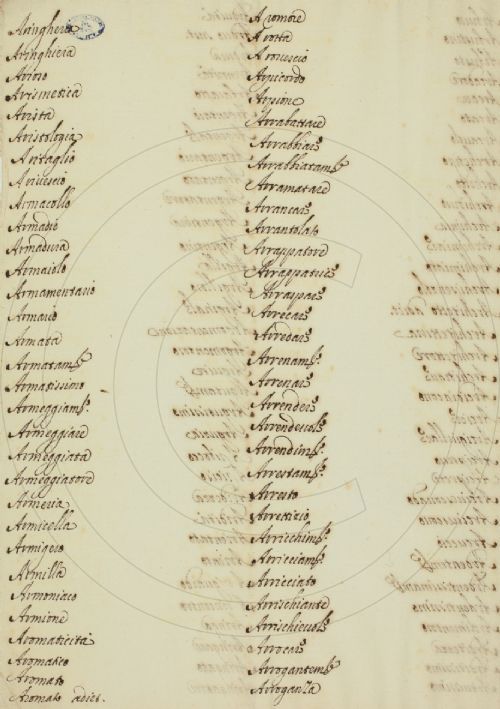 Aringhera
Aringhiera
Arioso
Arismetica
Arista
Aristologia
Aritaglio
Arivescio
Armacollo
Armadio
Armadura
Armaiolo
Armamentario
Armario
Armata
Armatam.
Armatissimo
Armeggiam.
Armeggiare
Armeggiata
Armeggiatore
Armeria
Armicella
Armigero
Armilla
Armoniaco
Armione
Aromaticità
Aromatico
Aromato
Aromato adiet.
Arrota
Arrovescio
Arpicordo
Arpione
Arrabattare
Arrabbiare
Arrabbiatam.
Arramatare
Arrancare
Arrantolato
Arrappatore
Arrappatrice
Arraspare
Arrecare
Arredare
Arrenam.
Arrenare
Arrendere
Arrendevole
Arrendim.
Arrestam.
Arresto
Arrettizio
Arricchim.
Arricciam.
Arricciato
Arrischiante
Arrischievole
Arrocare
Arrogantem.
Arroganza